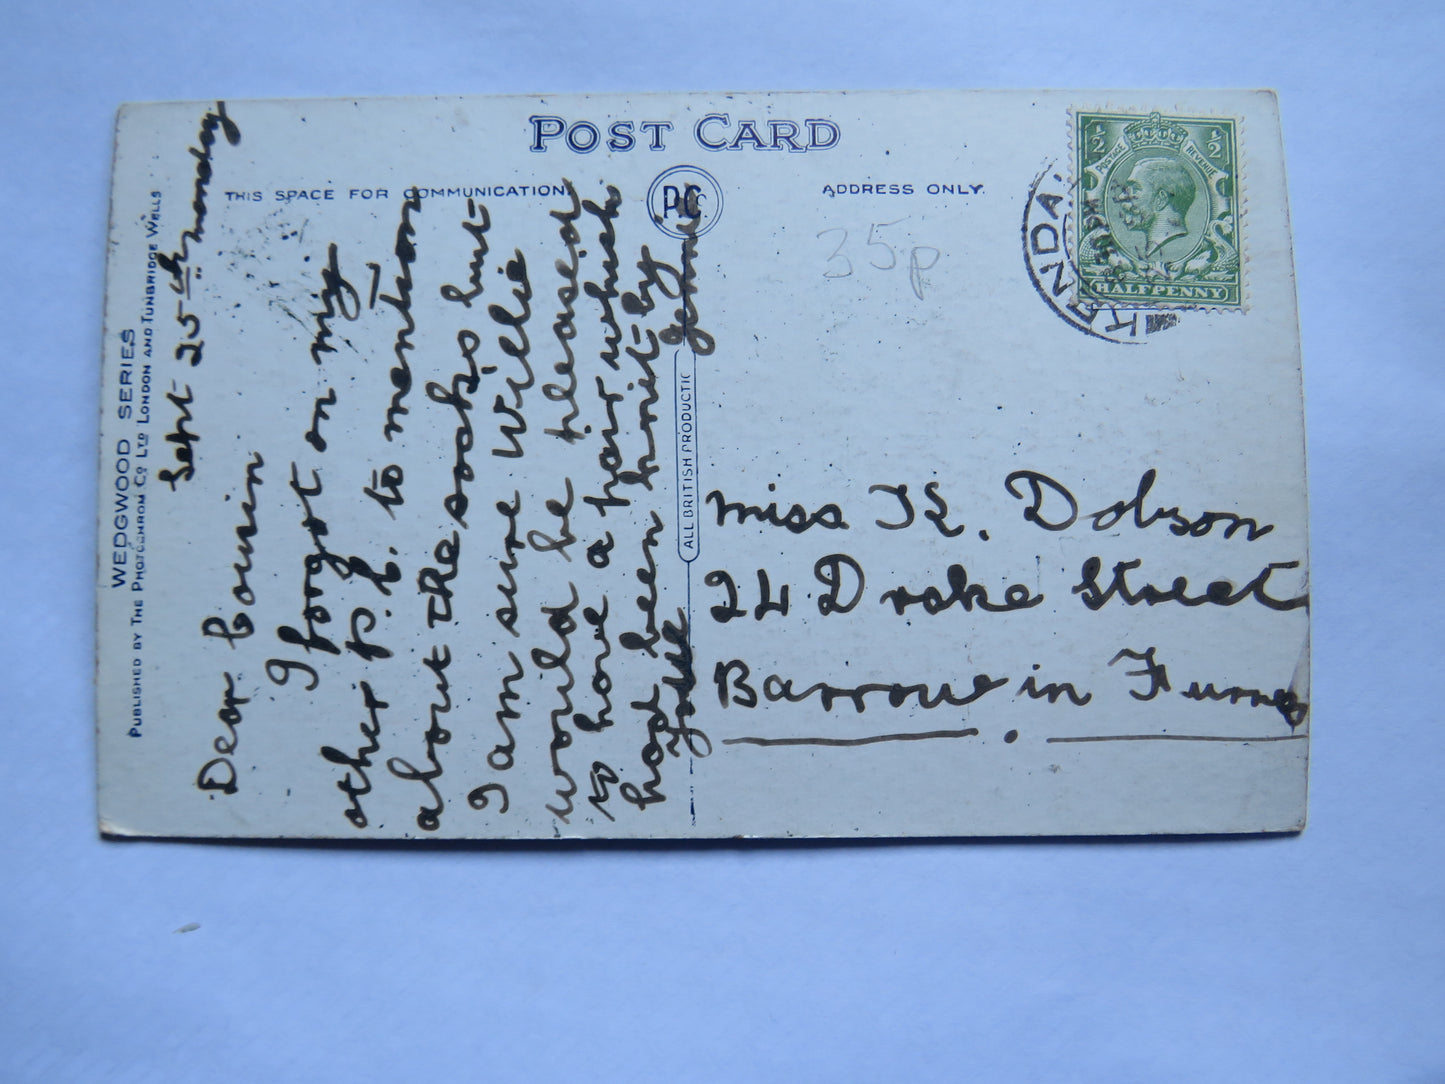 POST CARD
THIS SPACE FOR COMMUNICATION
ADDRESS ONLY.
PC
WEDGWOOD SERIES
PUBLISHED BY THE PHOTOCHROM Co LTD LONDON AND TUNBRIDGE WELLS
ALL BRITISH PRODUCTIO
½ ½
POSTAGE REVENUE
HALFPENNY
KENDA
35p
Sept 25th monday
Dear Cousin
I forgot on my
other p.c. to mention
about the socks but
I am sure Willie
would be pleased
to have a pair which
had been knit by
Jennie
Miss K. Dobson
24 Drake Street
Barrow in Furness